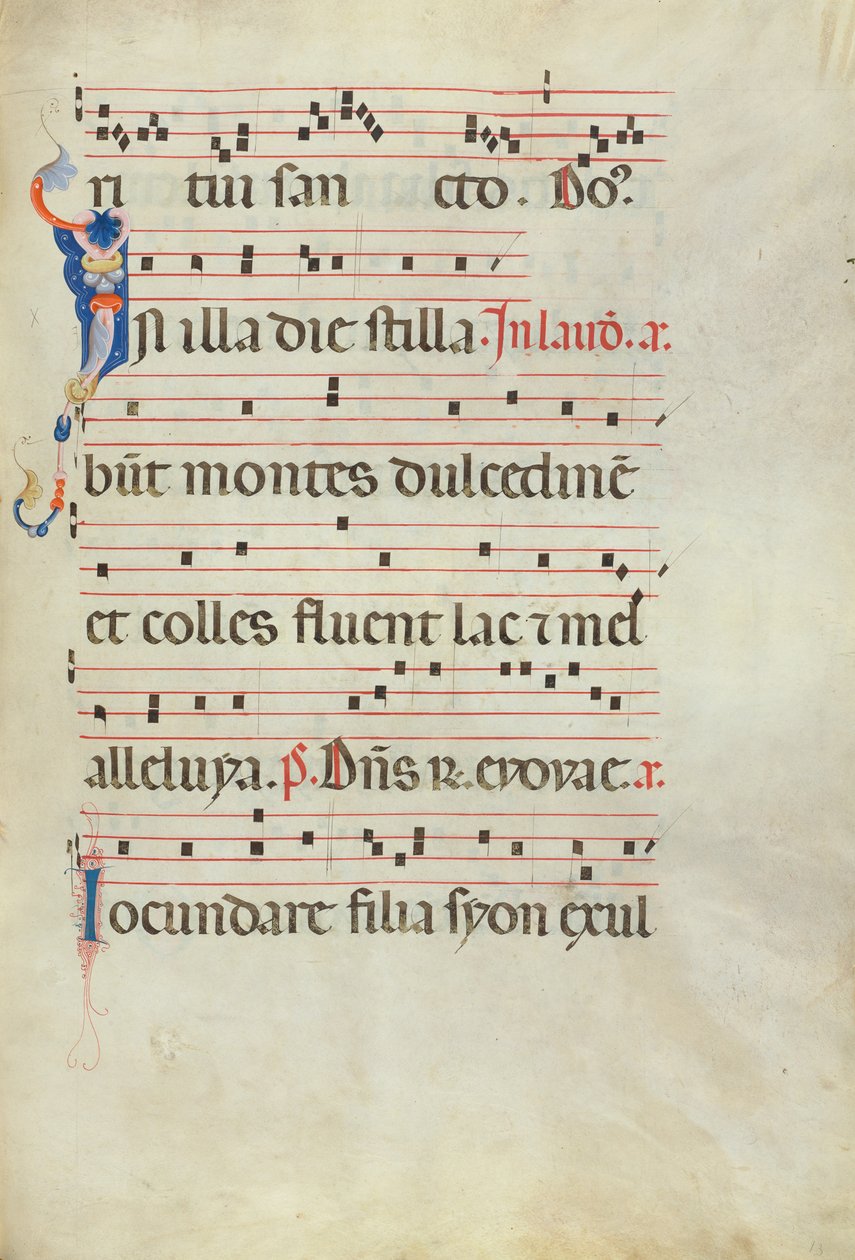 ri tui san cto. Do⁹.
In illa die stilla. In laud̄. a.
būt montes dulcedinē
et colles fluent lac ⁊ mel
alleluya. p̄. Dn̄s ꝶ. evovae. a.
Iocundare filia syon exul